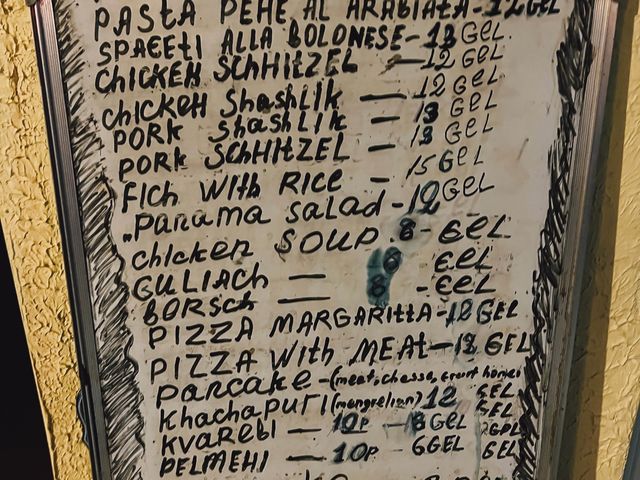 PASTA PEHE AL ARABIATA - 12 GEL
SPAEETI ALLA BOLONESE - 13 GEL
CHICKEH SCHHITZEL — 12 GEL
CHICKEH ShashLIK — 12 GEL
PORK ShashLIK — 13 GEL
PORK SCHHITZEL — 13 GEL
FICH WITH RICE — 15 GEL
„PANAMA SALAD - 12 GEL
chicken SOUP 8 - GEL
GULIACH — 8 GEL
BORSch — 8 - GEL
PIZZA MARGARITTA - 12 GEL
PIZZA WITH MEAT - 13 GEL
PANCAKE - (meat, chesse,
KhachaPURI (mengrelian) 12 GEL
KVAREBI — 10P - 8 GEL
PELMEHI — 10P - 6 GEL